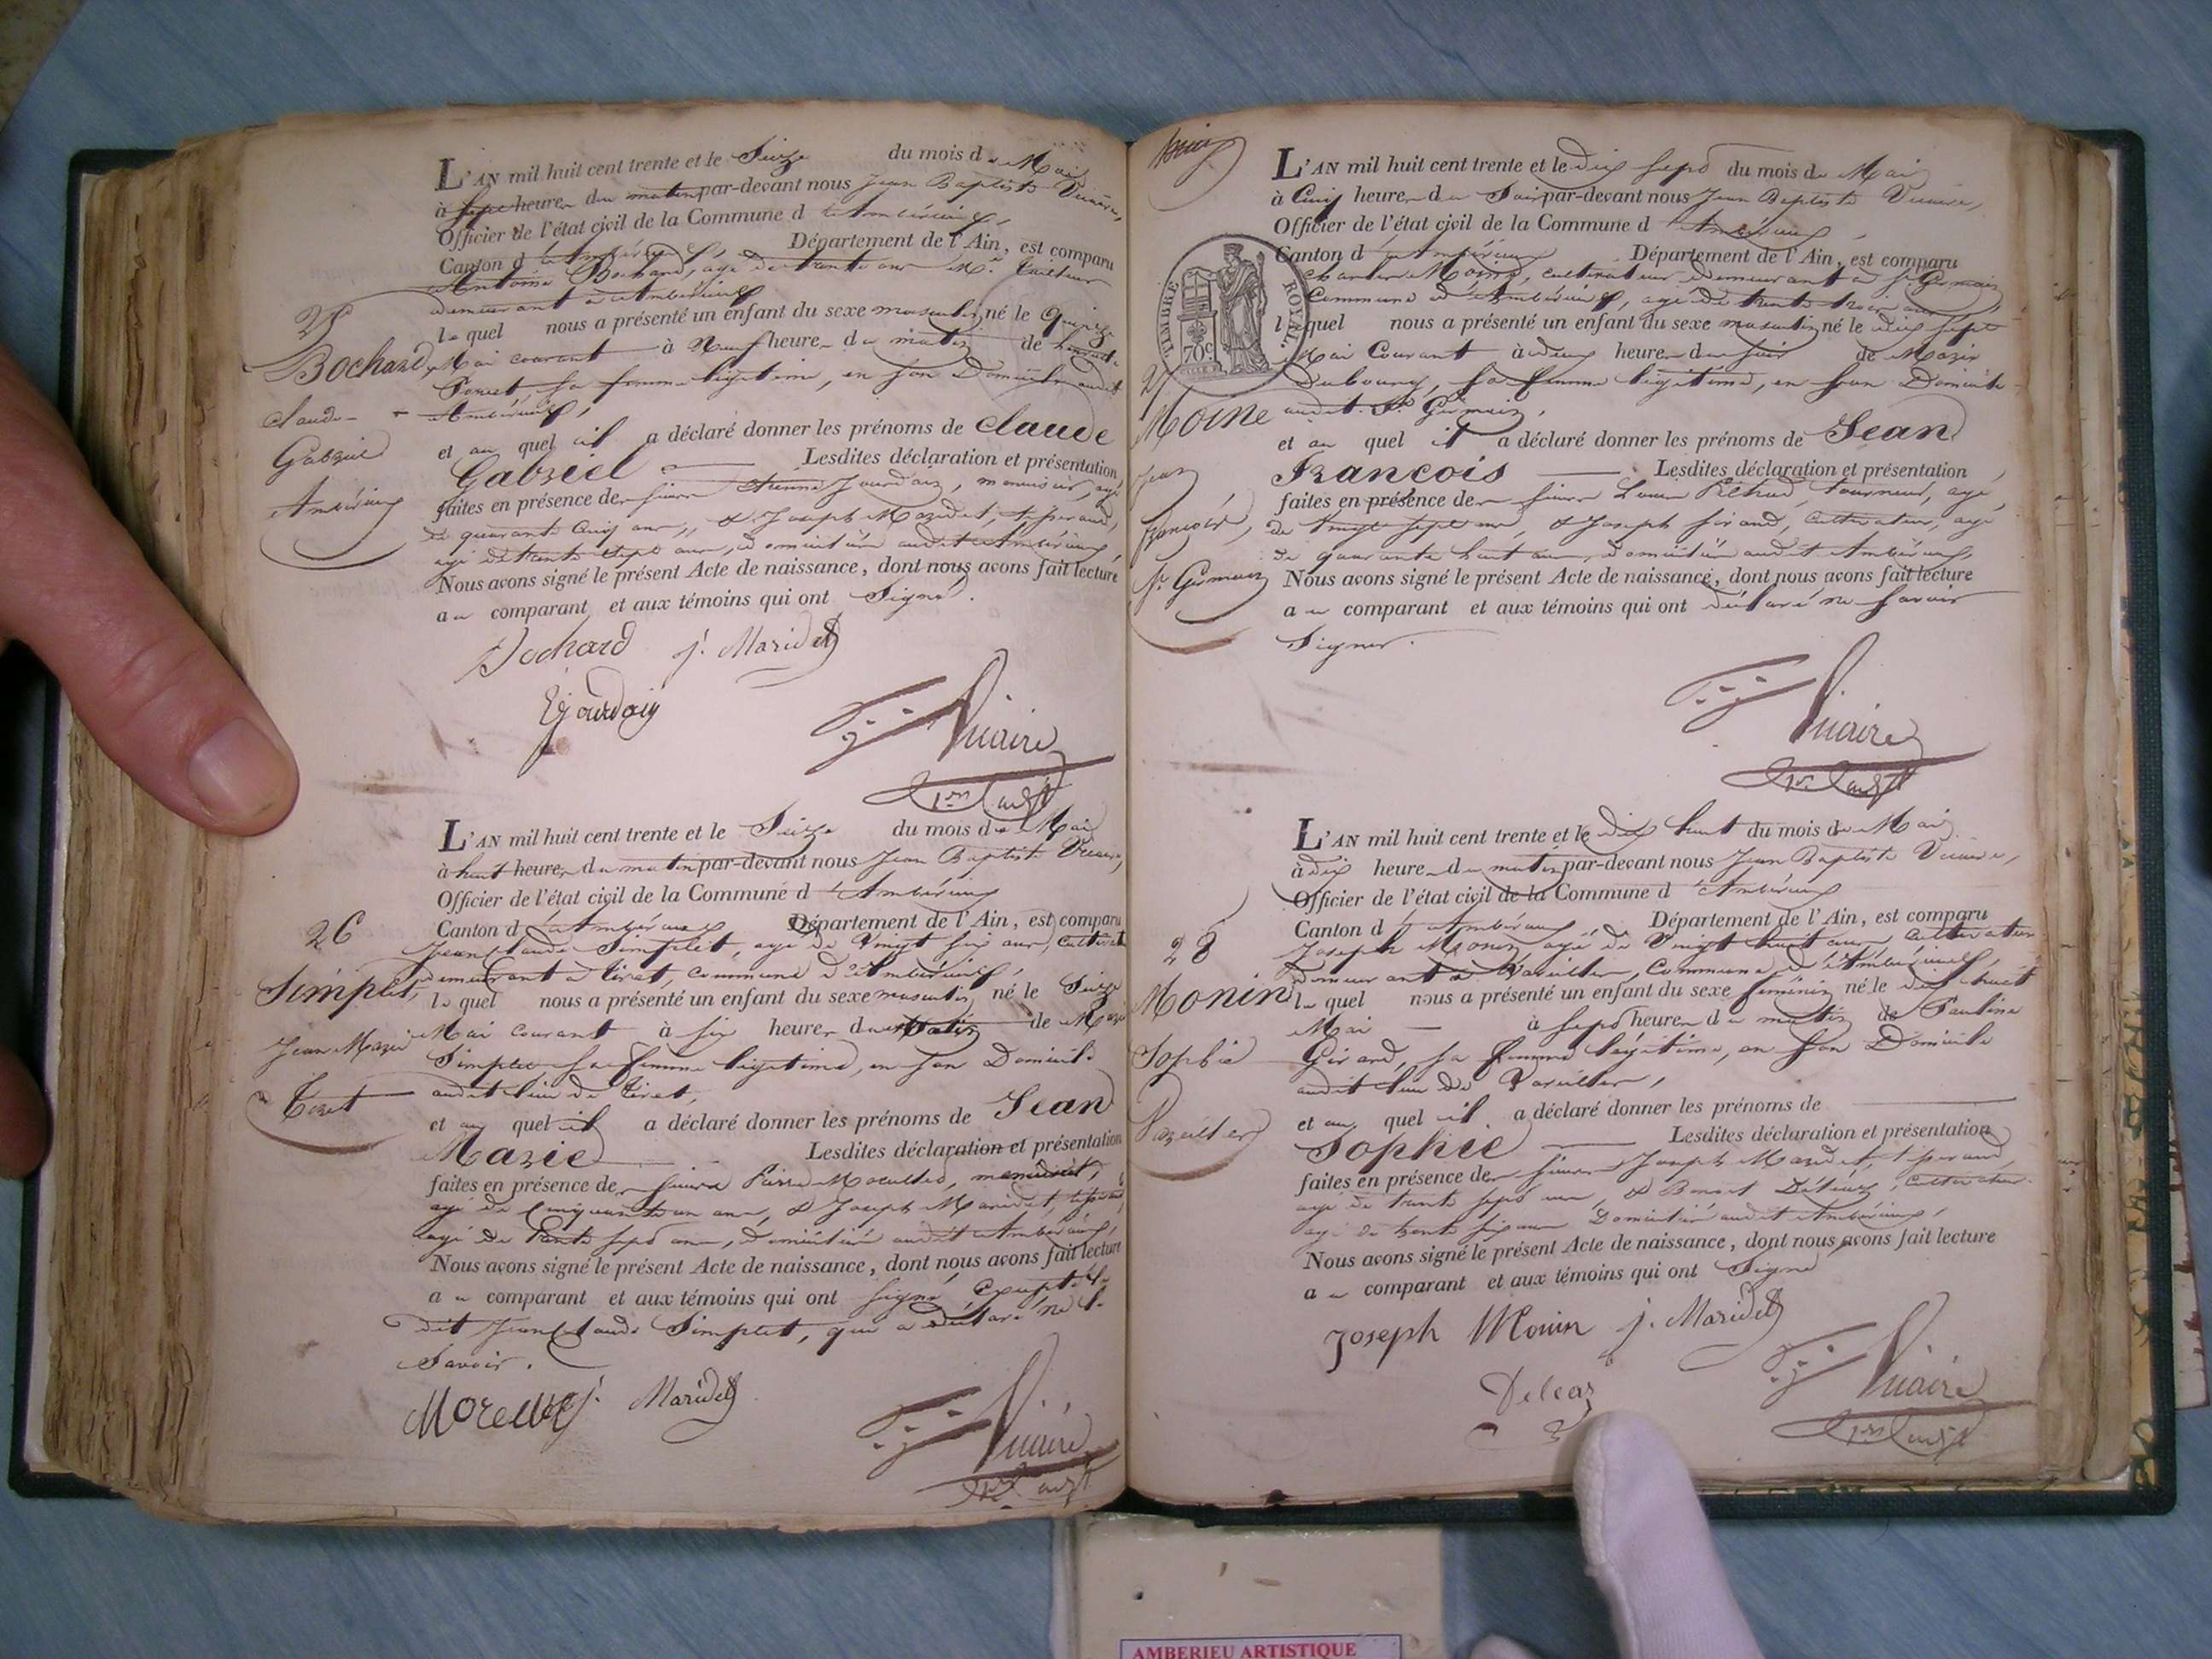 L'AN mil huit cent trente et le Seize du mois de Mai
à sept heures du matin par-devant nous Jean Baptiste Vicaire,
Officier de l'état civil de la Commune d'Ambérieux,
Canton d'Ambérieux, Département de l'Ain, est comparu
Antoine Bochard, agé de trente ans Md. Tailleur
demeurant à Ambérieux
lequel nous a présenté un enfant du sexe masculin né le Quinze
Mai courant à Neuf heures du matin de
sa femme légitime, en son Domicile audit
Ambérieux,
et au quel il a déclaré donner les prénoms de Claude
Gabriel Lesdites déclaration et présentation
faites en présence de sieurs Etienne Jourdain, menuisier, agé
de quarante cinq ans, & Joseph Maridet, tisserand,
agé de trente sept ans, domiciliés audit Ambérieux,
Nous avons signé le présent Acte de naissance, dont nous avons fait lecture
au comparant et aux témoins qui ont Signé.
Bochard j. Maridet
Ejourdain
Vicaire
25
Bochard
Claude
Gabriel
Ambérieux
L'AN mil huit cent trente et le Seize du mois de Mai
à huit heures du matin par-devant nous Jean Baptiste Vicaire,
Officier de l'état civil de la Commune d'Ambérieux
Canton d'Ambérieux Département de l'Ain, est comparu
Jean Claude Simplet, agé de Vingt six ans, Cultivat.
demeurant à Tiret, commune d'Ambérieux,
lequel nous a présenté un enfant du sexe masculin né le Seize
Mai courant à six heures du Matin de Marie
Simplet sa femme légitime, en son Domicile
audit lieu de Tiret,
et au quel il a déclaré donner les prénoms de Jean
Marie Lesdites déclaration et présentation
faites en présence de sieurs Pierre menuisier,
agé de Cinquante un ans, & Joseph Maridet,
agé de trente sept ans, domiciliés audit Ambérieux,
Nous avons signé le présent Acte de naissance, dont nous avons fait lecture
au comparant et aux témoins qui ont signé, Excepté le
dit Jean Claude Simplet, qui a déclaré ne le
Savoir.
j. Maridet
Vicaire
26
Simplet,
Jean Marie
Tiret
L'AN mil huit cent trente et le dix sept du mois de Mai
à Cinq heures du Soir par-devant nous Jean Baptiste Vicaire,
Officier de l'état civil de la Commune d'Ambérieux
Canton d'Ambérieux Département de l'Ain, est comparu
Moine, cultivateur demeurant à St. Germain
Commune d'Ambérieux, agé de trente trois ans
lequel nous a présenté un enfant du sexe masculin né le dix sept
Mai Courant à deux heures du soir de Marie
Dubourg, sa femme légitime, en son Domicile
audit St. Germain,
et au quel il a déclaré donner les prénoms de Jean
François Lesdites déclaration et présentation
faites en présence de sieurs Louis tourneur, agé
de vingt sept ans, & Joseph Girand, Cultivateur, agé
de quarante huit ans, domiciliés audit Ambérieux,
Nous avons signé le présent Acte de naissance, dont nous avons fait lecture
au comparant et aux témoins qui ont déclaré ne savoir
Signer.
Vicaire
TIMBRE ROYAL.
70c
27
Moine
Jean
François,
St. Germain
L'AN mil huit cent trente et le dix huit du mois de Mai
à dix heures du matin par-devant nous Jean Baptiste Vicaire,
Officier de l'état civil de la Commune d'Ambérieux
Canton d'Ambérieux Département de l'Ain, est comparu
Joseph Monin, agé de Vingt huit ans, Cultivateur
demeurant à Vareilles, Commune d'Ambérieux,
lequel nous a présenté un enfant du sexe féminin né le dix huit
Mai à sept heures du matin de Pauline
Girand, sa femme légitime, en son Domicile
audit lieu de Vareilles,
et au quel il a déclaré donner les prénoms de
Sophie Lesdites déclaration et présentation
faites en présence de sieurs Joseph Maridet, tisserand,
agé de trente sept ans, & Benoit Cultivateur
agé de trente six ans Domiciliés audit Ambérieux,
Nous avons signé le présent Acte de naissance, dont nous avons fait lecture
au comparant et aux témoins qui ont Signé
Joseph Monin j. Maridet
Vicaire
28
Monin
Sophie
Vareilles
AMBERIEU ARTISTIQUE